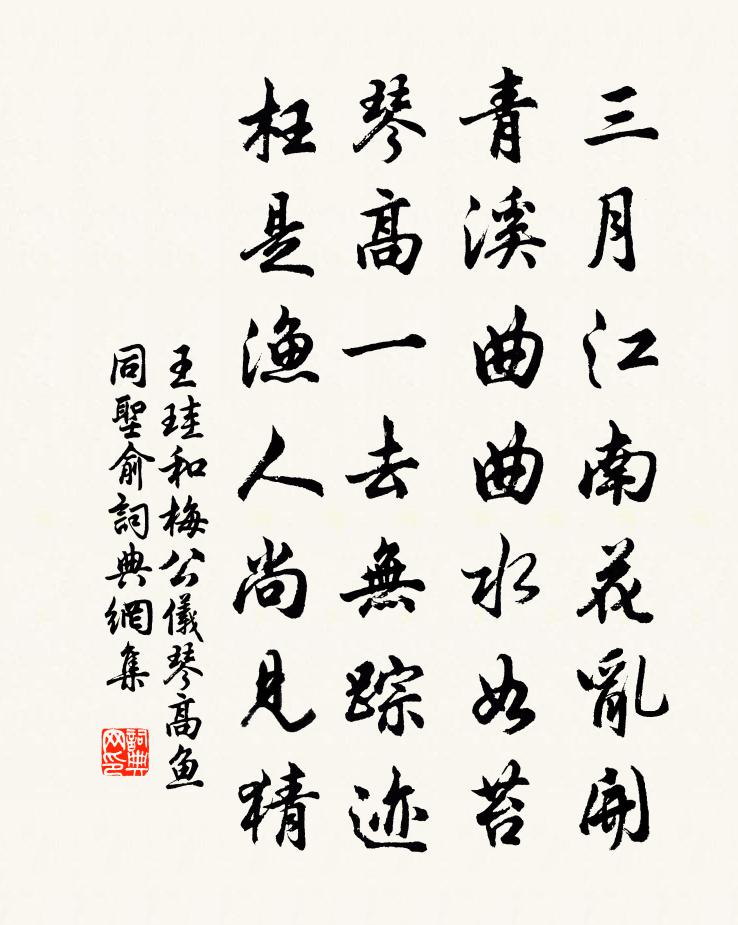 三月江南花亂開
青溪曲曲水如苔
琴高一去無踪迹
枉是漁人尚見猜
王珪和梅公儀琴高魚
同聖俞詞典網集
詞典网印